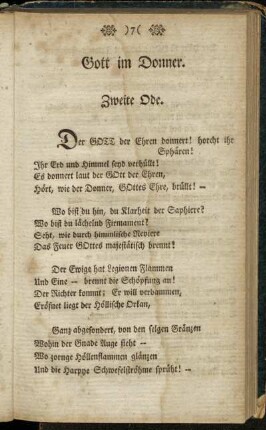 )7(
Gott im Donner.
Zweite Ode.
Der GOTT der Ehren donnert! horcht ihr
Sphären!
Ihr Erd und Himmel seyd verhüllt!
Es donnert laut der GOtt der Ehren,
Hört, wie der Donner, GOttes Ehre, brüllt! --
Wo bist du hin, du Klarheit der Saphiere?
Wo bist du lächelnd Firmament?
Seht, wie durch himmlische Reviere
Das Feuer GOttes majestätisch brennt!
Der Ewige hat Legionen Flammen
Und Eine -- brennt die Schöpfung an!
Der Richter kommt; Er will verdammen,
Eröfnet liegt der Höllische Orkan,
Ganz abgesondert, von den selgen Gränzen
Wohin der Gnade Auge sieht --
Wo zornge Höllenflammen glänzen
Und die Harpye Schwefelströhme sprüht! --